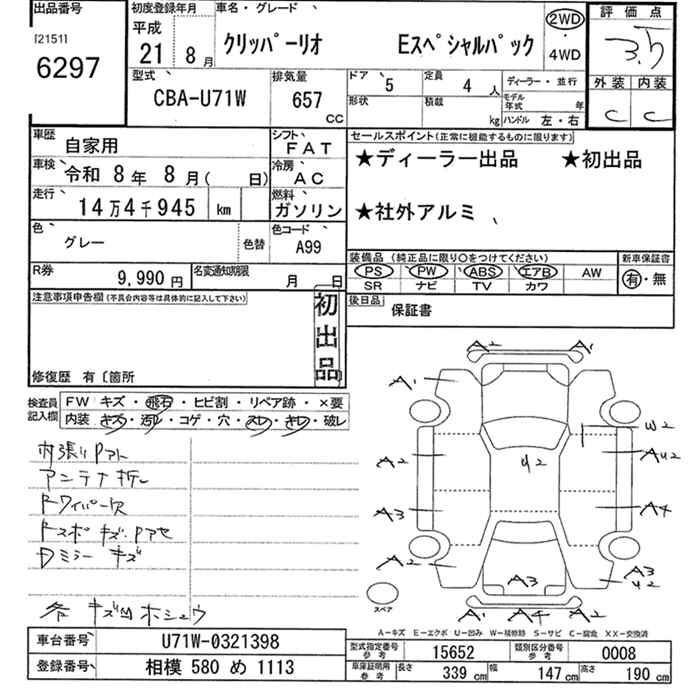 出品番号
I21511
6297
初度登録年月
平成
21 8月
車名・グレード
クリッパーリオ Eスペシャルパック
2WD
・
4WD
評価点
3.5
外装 内装
C C
型式
CBA-U71W
排気量
657
CC
ドア 5
形状
定員 4 人
積載 kg
ディーラー・並行
モデル年式 年
ハンドル 左・右
車歴 自家用
車検 令和 8年 8月( 日)
走行 14万4千945 km
色 グレー 色替
シフト FAT
冷房 AC
燃料 ガソリン
色コード A99
セールスポイント(正常に機能するものに限ります)
★ディーラー出品 ★初出品
★社外アルミ、
装備品(純正品に限り○をつけてください)
PS PW ABS エアB AW
SR ナビ TV カワ
新車保証書
有・無
R券 9,990円
名変通知期限 月 日
後日品 保証書
注意事項申告欄(不具合内容等は具体的に記入して下さい)
初出品
修復歴 有〔箇所
検査員記入欄
FW キズ・飛石・ヒビ割・リペア跡・×要
内装 キズ・汚レ・コゲ・穴・スレ・キレ・破レ
内張りPアト
アンテナ折レ
Rワイパー欠
Rスポ キズ.Pアセ
Dミラー キズ
各 キズ凹ホシュウ
A2 A1
A1
W2
A2 AU2
U2
A3 A4
A2
A3
A3
U2
A1 A4 A2
スペア
A-キズ E-エクボ U-凹み W-補修跡 S-サビ C-腐食 XX-交換済
車台番号 U71W-0321398
登録番号 相模 580 め 1113
型式指定番号 参考 15652
類別区分番号 参考 0008
車庫証明用 参考 長さ 339 cm 幅 147 cm 高さ 190 cm